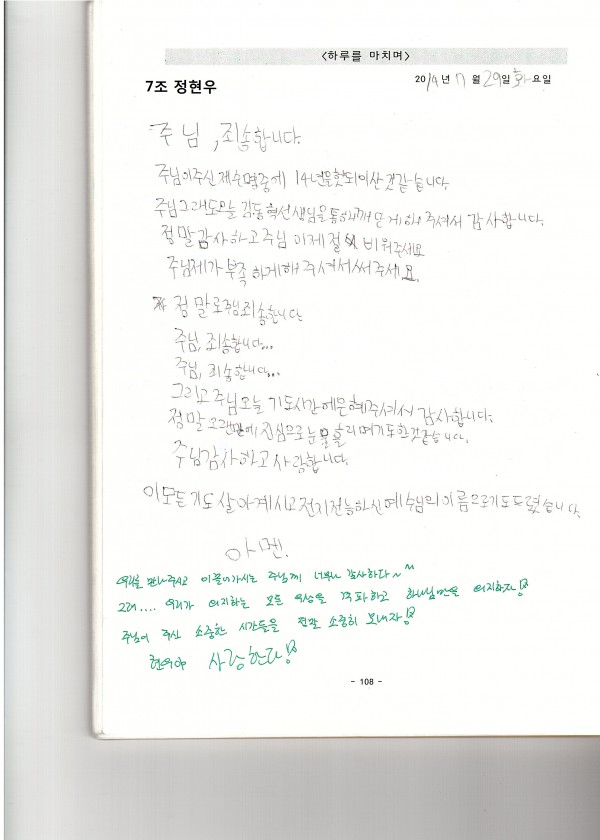 <하루를 마치며>
7조 정현우
2014년 7월 29일 화요일
주님, 죄송합니다.
주님이주신 제수명중에 14년을헛되이산것같습니다.
주님그래도오늘 김동혁선생님을통해깨닫게해주셔서 감사합니다.
정말감사하고주님 이제절 비워주세요
주님제가부족하게해주셔서써주세요.
정말로주님죄송합니다
주님, 죄송합니다...
주님, 죄송합니다...
그리고주님오늘 기도시간에은혜주셔서 감사합니다.
정말오랜만에진심으로눈물을흘리며기도한것같습니다.
주님감사하고사랑합니다.
이모든기도살아계시고전지전능하신예수님의이름으로기도드렸습니다.
아멘.
우리를 만나주시고 이끌어가시는 주님께 너무나 감사하다~~
그래.... 우리가 의지하는 모든 우상을 격파하고 하나님만을 의지하자!
주님이 주신 소중한 시간들을 정말 소중히 보내자!
현우야 사랑한다!
- 108 -